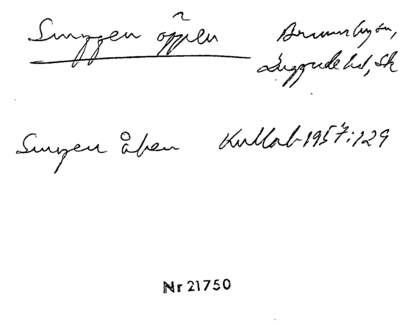 Smyggen öppen Brunnbyson,
Luggude hd, Sk
Smygen åben Kullab 1957:129
Nr 21750